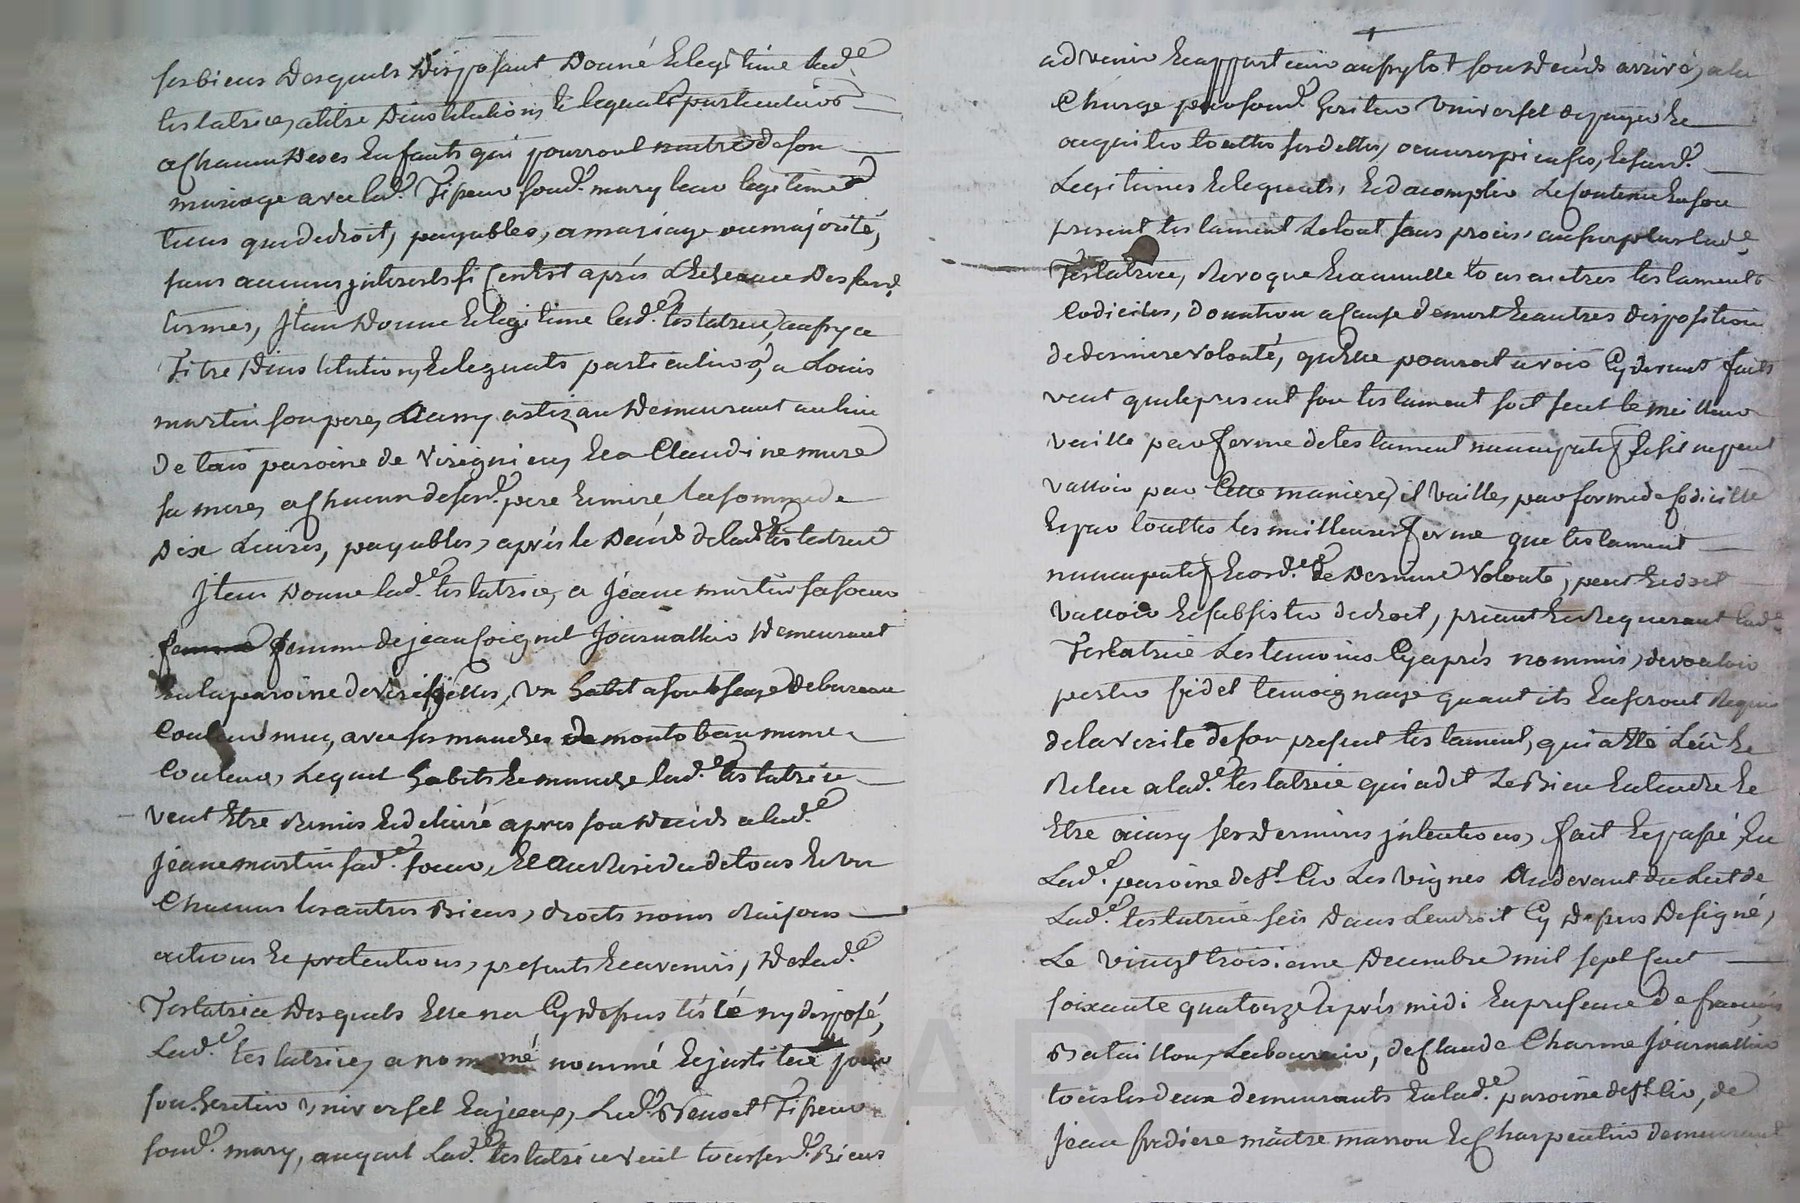 ses biens desquels disposant donné & legitime lad.e
testatrice, a titre d'institution, & leguats particuliers
a Chacun de ses Enfants qui pourront naitre de son
mariage avec led.t Tisseur sond.t mary leur legitime
tiens que de droit, payables, a mariage ou majorité,
sans aucuns jnterests si cen'est après Lecheance desserd.
termes, Jtem donne & legitime lad.e testatrice, aussy a
Titre d'institution, & leguats particuliers, a Louis
martin son pere, artizan demeurant au lieu
de paroine de virignieu, & a Claudine mure
sa mere, a Chacun desserd.t pere & mere la somme de
Dix Livres, payables, après le Décès de lad.e testatrice
Jtem donne lad.e testatrice, a Jeane martin sa soeur
femme femme de jean Coignet Journallier demeurant
En la paroine de , un habit a son usage de bureau
Couleur , avec ses manches de montobau mme
Couleur, Lequel habits & manche lad.e testatrice
veut Etre Remis & delivré apres son Décès a lad.e
Jeane martin sad.e soeur, Et au Residu de tous & un
Chacuns les autres Biens, droits noms Raisons
actions & pretentions, presents & avenirs, de lad.e
Testatrice desquels Elle na Cy dessus testé ny disposé,
Lad.e testatrice, a nommé nommé & jnstitué pour
son heritier universel , Led.t Benoet Tisseur
sond.t mary, auquel Lad.e testatrice veut tous serd.t Biens
advenir & appartenir aussytot son Décès arrivé, a la
Charge par sond.t heritier universel de payer &
acquiter touttes ses dettes, oeuvres pieuses, & serd.t
Legitimes & leguats, & d'acomplir Le Contenu En son
present testament Le tout sans procès, au surplus lad.e
Testatrice, Revoque & annulle tous autres testaments
Codiciles, donation a Cause de mort & autres disposition
de derniere volonté, qu'Elle pourroit avoir Cy devant faits
veut que le present son testament soit seul le meilleur
vaille par forme de testament nuncupatif & s'il ne peut
valloir par Cette maniere, il vaille, par forme de Codicille
& par touttes les meilleures forme que testament
nuncupatif & ord.ce de derniere volonté, peut & doit
valloir & subsister de droit, priant & Requerant lad.e
Testatrice Les temoins Cy après nommés, de vouloir
porter fidel temoignage quant ils En seront Requis
de la verité de son present testament, qui a Eté Leu &
Releu a lad.e testatrice qui a dit Le Bien Entendre &
Etre ainsy ses dernieres jntentions, fait & passé, En
Lad.e paroine de S.t Cir Les vignes Au devant du Lict de
Lad.e testatrice sis Dans L'endroit Cy dessus designé,
Le vingt troisieme Decembre mil sept Cent
soixante quatorze après midi En presence de francois
Bataillon, Laboureur, de Claude Charme Journallier
tous les deux demeurants En lad.e paroine de S.t Cir, de
Jean fredière maitre masson & Charpentier demeurant